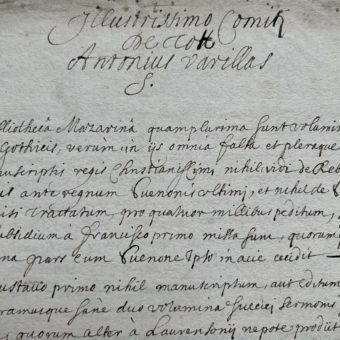 Illustrissimo Comiti
De ccott
Antonius Varillas
S.
bliothecâ Mazarinâ quamplurima sunt volumin
Gothicis, verum in ijs omnia falsa et pleraque
nuscriptis regis Christianissimi nihil vidi de Reb
us ante regnum Suenonis ultimi, et nihil de
isi tractatum, pro quatuor millibus peditum,
ubsidium â Francisco primo missa sunt, quorum
na pars cum Suenone Ipso in acie cecidit
ustavo primo nihil manuscriptum, aut editum
tramusque sane duo volumina Suecici sermonis
, quorum alter à Laurensonij nepote prodijt